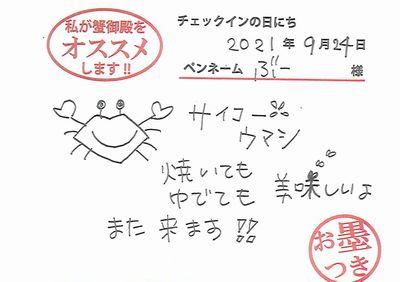 私が蟹御殿を
オススメ
します!!
チェックインの日にち
2021年9月24日
ペンネーム ぶー 様
サイコー
ウマシ
焼いても
ゆでても 美味しいよ
また来ます!!
お墨
つき